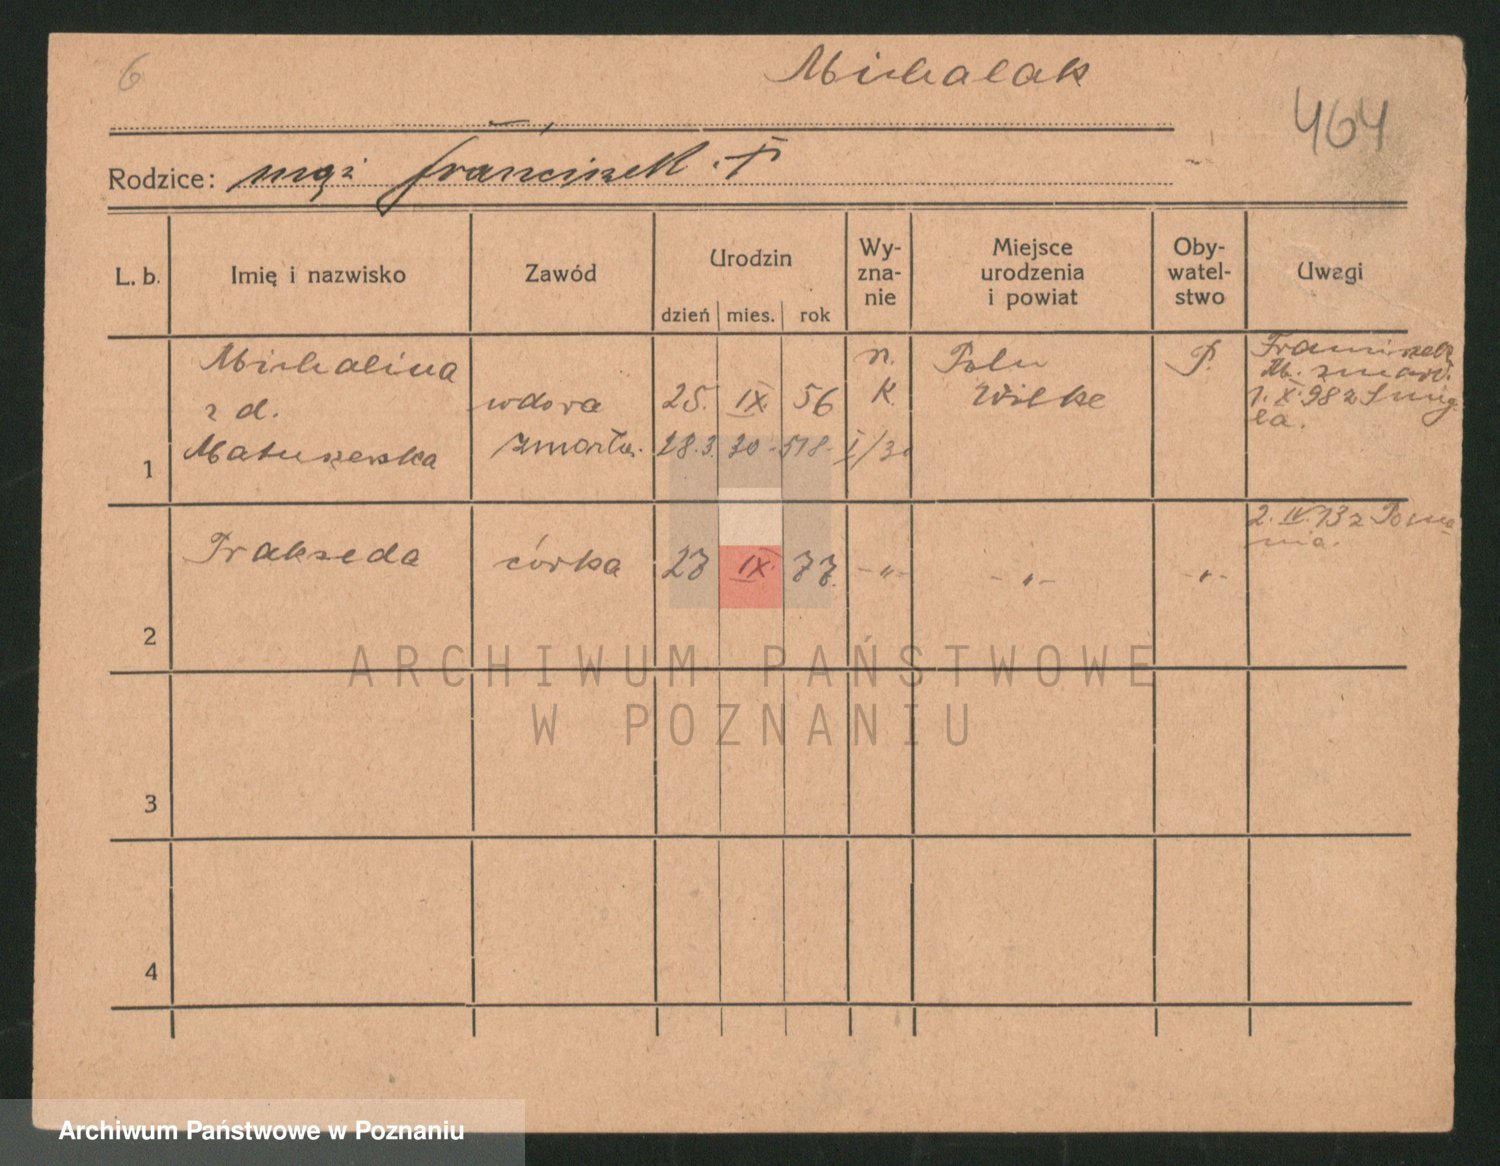 6
Michalak
464
Rodzice: mąż Franciszek. †
L. b.
Imię i nazwisko
Zawód
Urodzin
dzień
mies.
rok
Wy-
zna-
nie
Miejsce
urodzenia
i powiat
Oby-
watel-
stwo
Uwagi
1
Michalina
z d.
Matuszewska
wdowa
zmarła.
25. IX. 56
28.3. 30 - 518 - I/30
r.
K.
Wilke
P.
Franciszek
M. zmarł.
1. X. 98 z Śmig-
la.
2
Prakseda
córka
27 IX. 77.
-„-
-„-
-„-
2. IV. 13 z Pozna-
nia.
3
4
ARCHIWUM PAŃSTWOWE
W POZNANIU
Archiwum Państwowe w Poznaniu